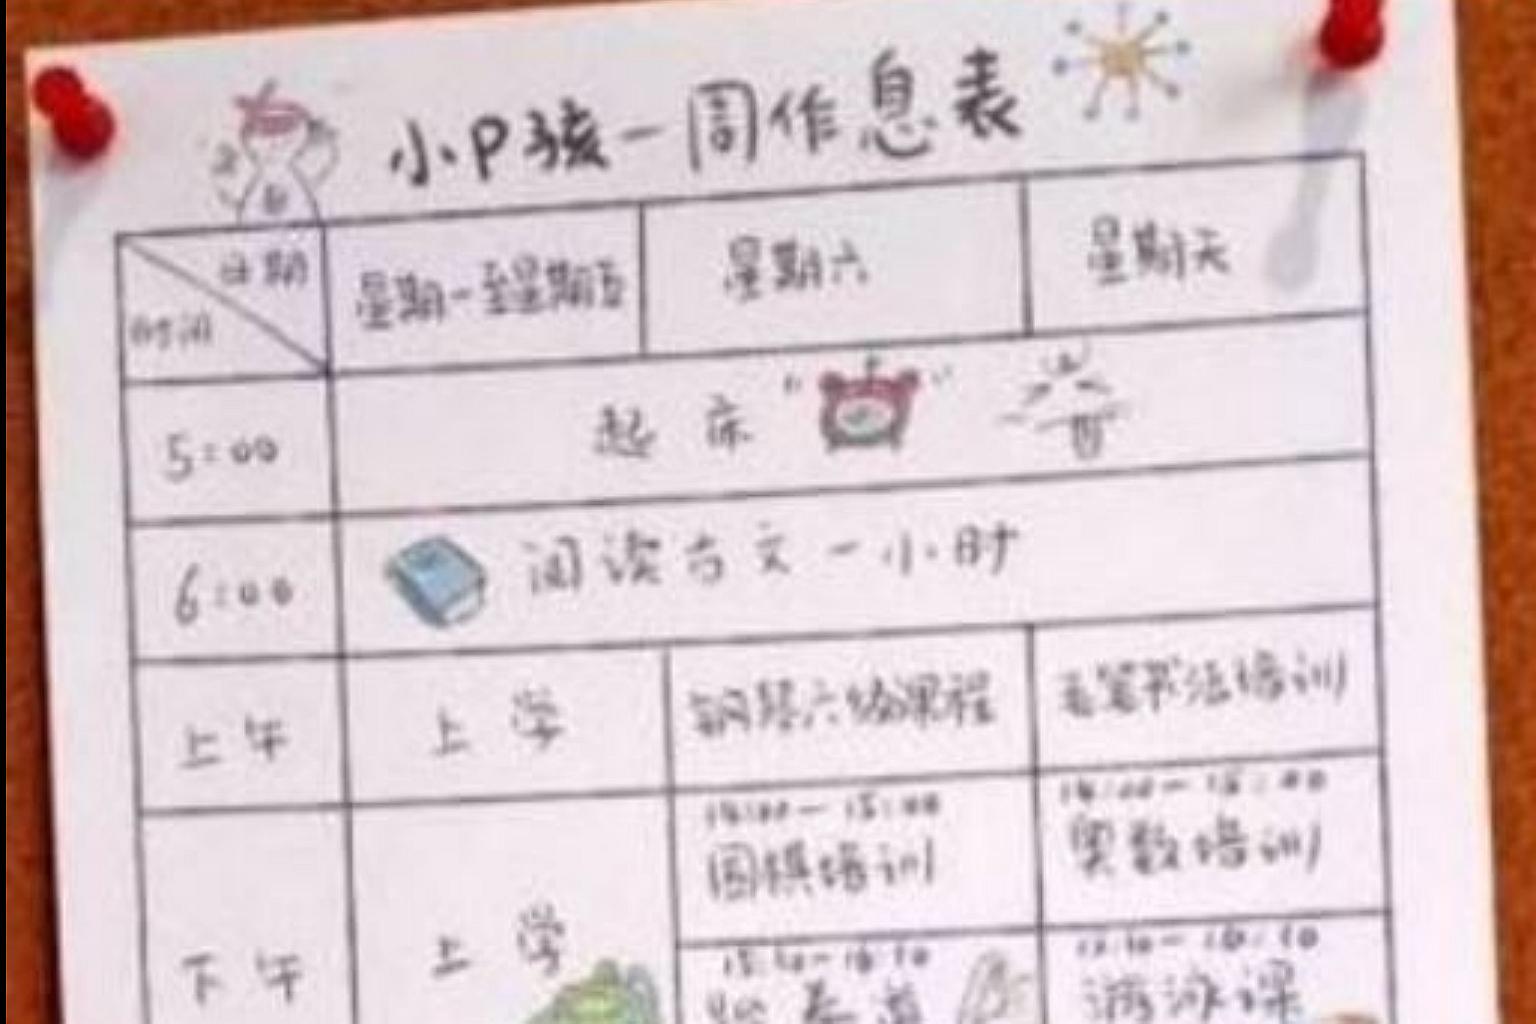 小P孩一周作息表
日期
时间
星期一至星期五
星期六
星期天
5:00
起床
6:00
阅读古文一小时
上午
上学
钢琴六级课程
毛笔书法培训
下午
上学
14:00-15:00
围棋培训
14:00-15:00
奥数培训
跆拳道
游泳课